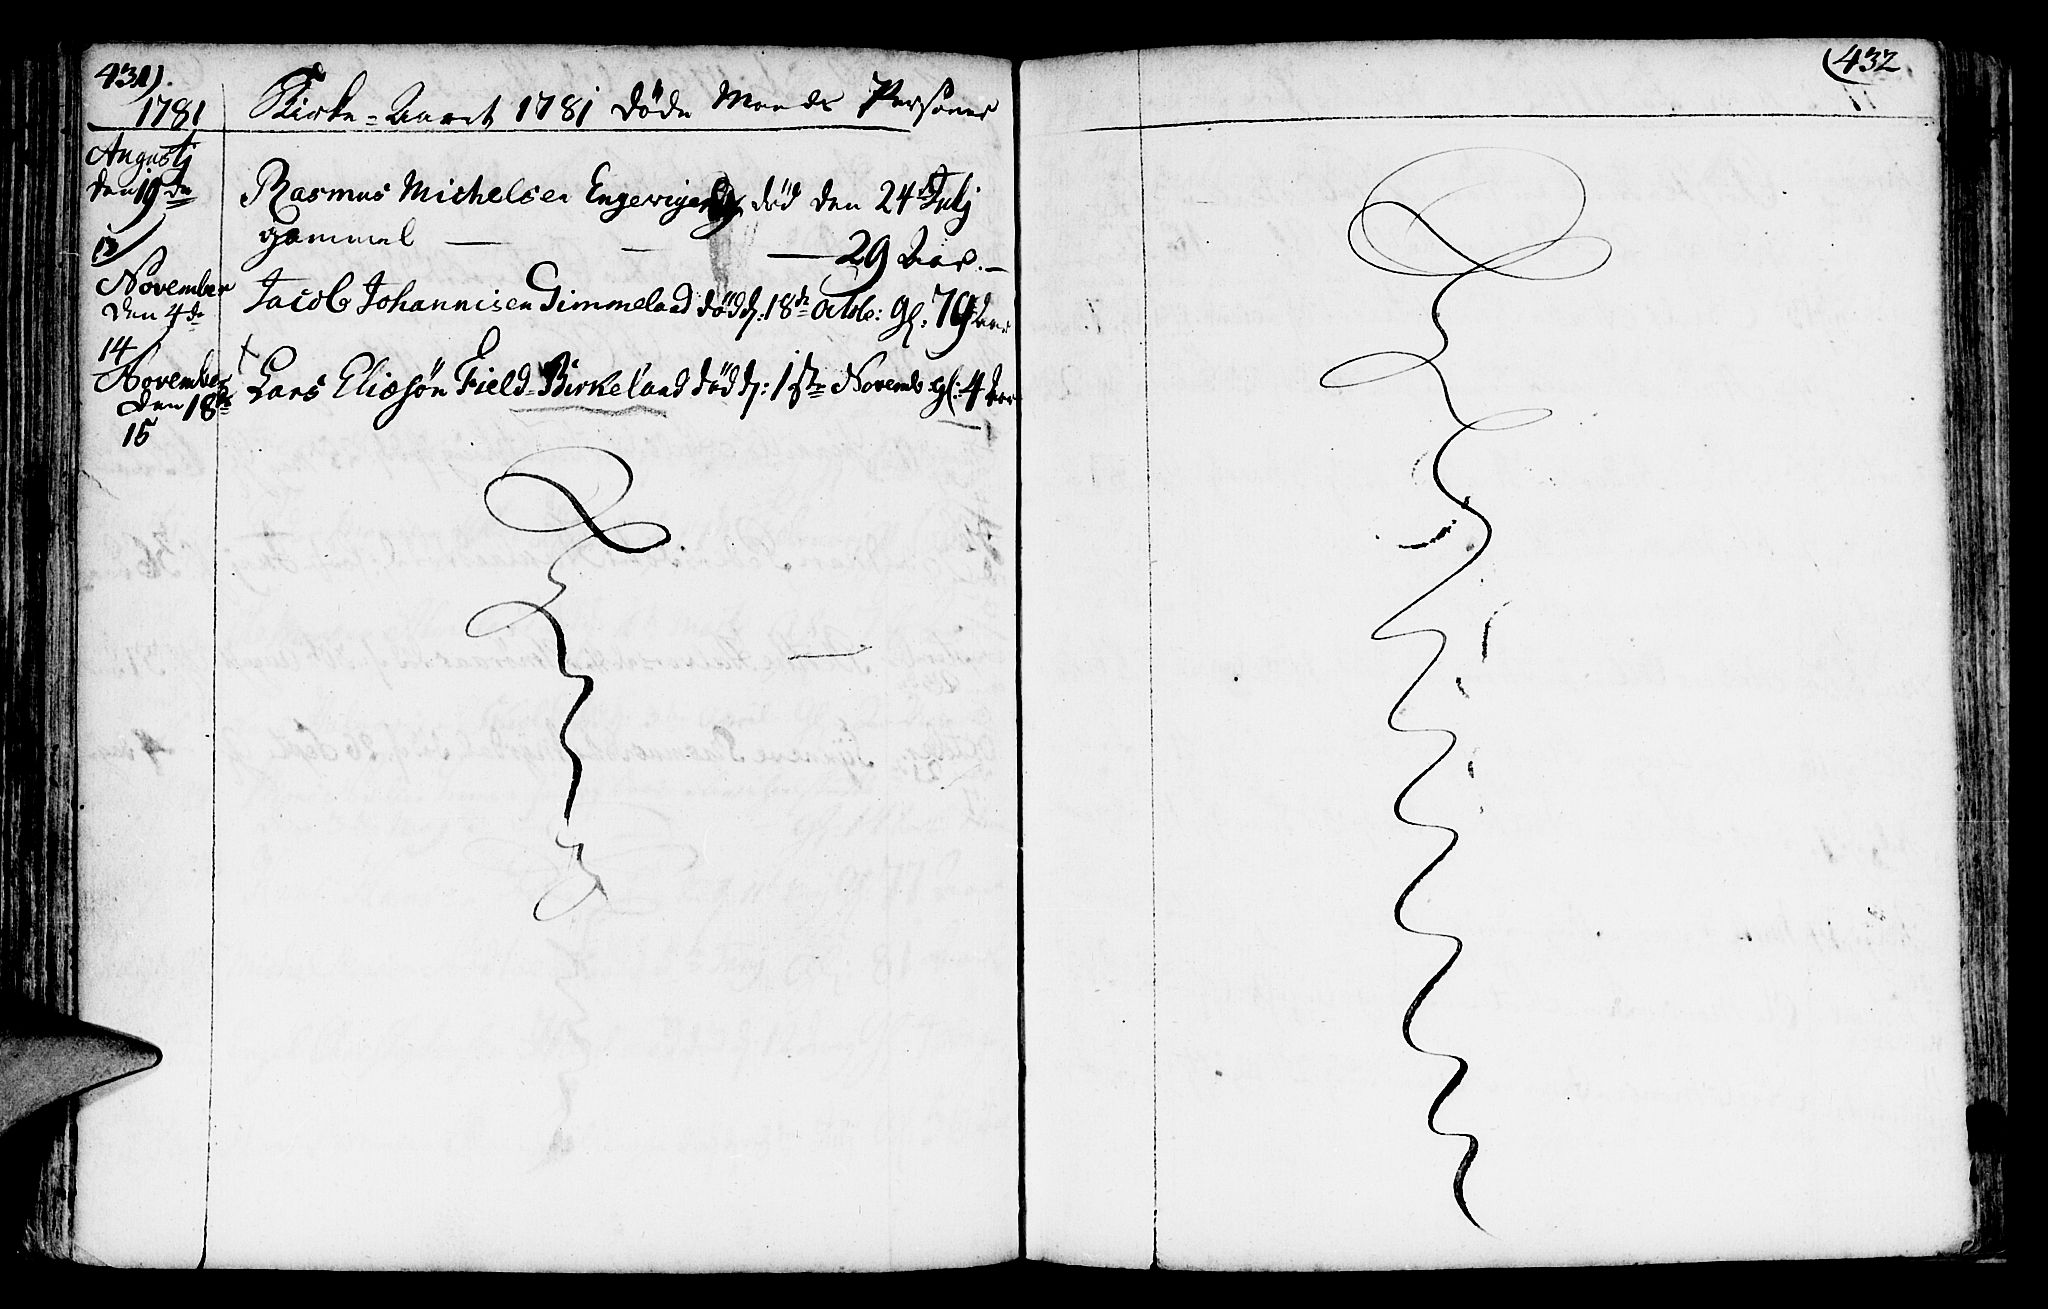 431).
1781
Kirke-Aaret 1781 døde Mands Personer
Augustj
den 19de
Rasmus Michelsen død den 24de Julj
gammel — — — 29 Aar. —
13
November
den 4de
Jacob Johannisen Gimmeland død d: 18de Octbr: gl: 79 Aar
14
November
den 18de
Lars Eliesøn Field-Birkeland død d: 1ste Novemb: gl: 4 Aar
15
(432